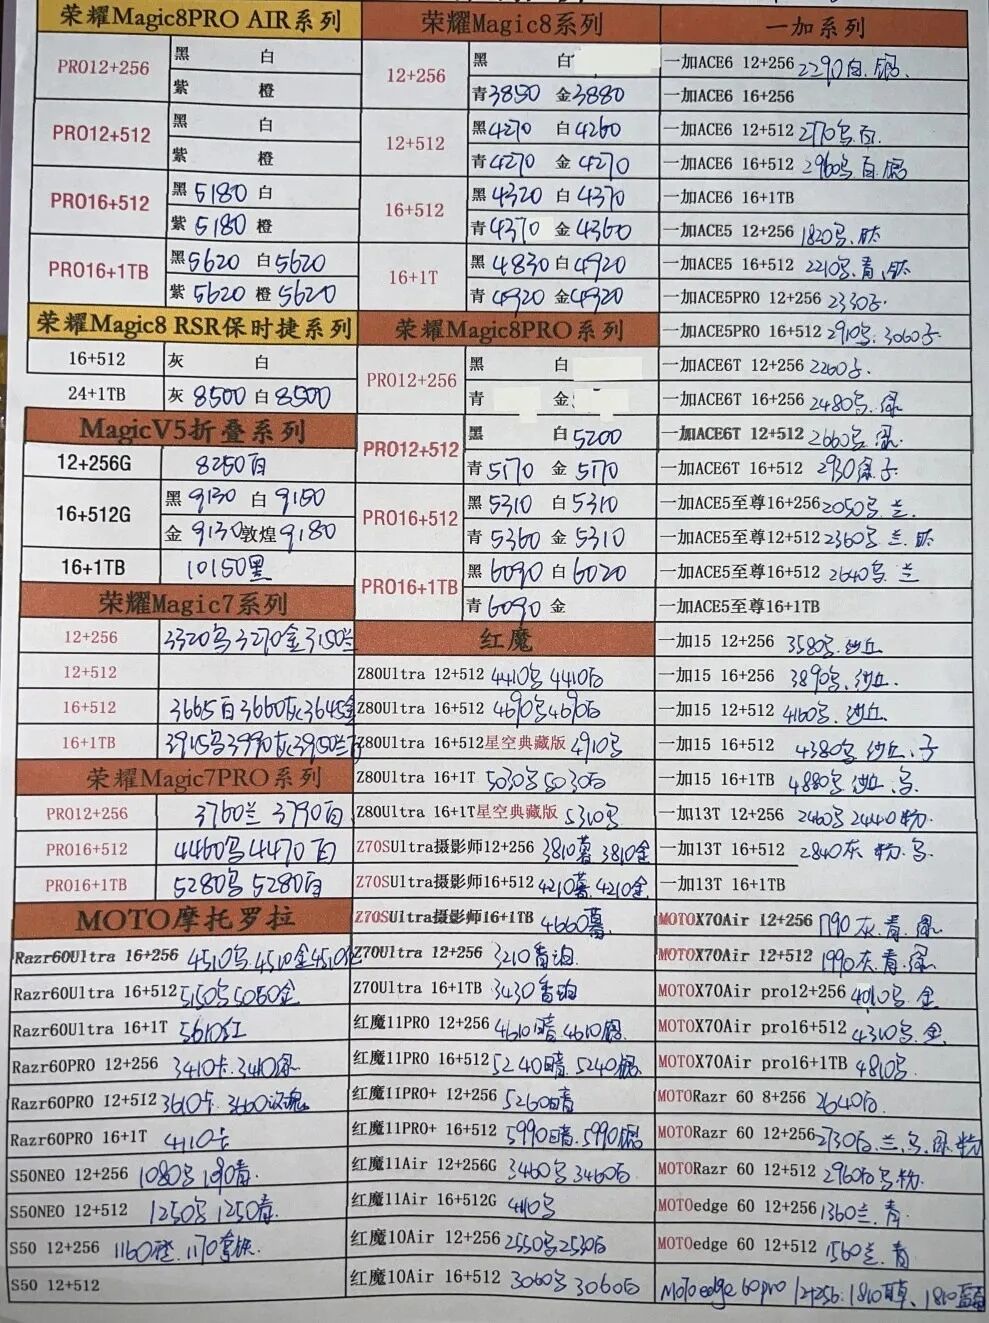 荣耀Magic8PRO AIR系列
PRO12+256 黑 白
紫 橙
PRO12+512 黑 白
紫 橙
PRO16+512 黑 5180 白
紫 5180 橙
PRO16+1TB 黑 5620 白 5620
紫 5620 橙 5620
荣耀Magic8 RSR保时捷系列
16+512 灰 白
24+1TB 灰 8500 白 8500
MagicV5折叠系列
12+256G 8250白
16+512G 黑 9130 白 9180
金 9130 敦煌 9180
16+1TB 10150黑
荣耀Magic7系列
12+256 3320乌 3270金 3150兰
12+512
16+512 3665白 3660灰 3645金
16+1TB 3915乌 3990灰 3950兰
荣耀Magic7PRO系列
PRO12+256 3760兰 3790白
PRO16+512 4460乌 4470白
PRO16+1TB 5280乌 5280白
MOTO摩托罗拉
Razr60Ultra 16+256 4510乌.4510金4510
Razr60Ultra 16+512 5150乌5060金
Razr60Ultra 16+1T 5610红
Razr60PRO 12+256 3410卡.3410绿
Razr60PRO 12+512 3610卡.3660
Razr60PRO 16+1T 4110卡
S50NEO 12+256 1080乌 1090青.
S50NEO 12+512 1250乌 1250青.
S50 12+256 1160橙.1170
S50 12+512
荣耀Magic8系列
12+256 黑 白
青 3850 金 3880
12+512 黑 4270 白 4260
青 4270 金 4270
16+512 黑 4320 白 4370
青 4370 金 4360
16+1T 黑 4830 白 4920
青 4920 金 4920
荣耀Magic8PRO系列
PRO12+256 黑 白
青 金
PRO12+512 黑 白 5200
青 5170 金 5170
PRO16+512 黑 5310 白 5310
青 5360 金 5310
PRO16+1TB 黑 6090 白 6020
青 6090 金
红魔
Z80Ultra 12+512 4410乌 4410白
Z80Ultra 16+512 4690乌4690白
Z80Ultra 16+512星空典藏版 4910乌
Z80Ultra 16+1T 5030乌5030白
Z80Ultra 16+1T星空典藏版 5310乌
Z70SUltra摄影师12+256 3810暮 3810金
Z70SUltra摄影师16+512 4210暮.4210金
Z70SUltra摄影师16+1TB 4660暮
Z70Ultra 12+256 3210香泊
Z70Ultra 16+1TB 3430香泊
红魔11PRO 12+256 4610暗.4610银
红魔11PRO 16+512 5240暗.5240银
红魔11PRO+ 12+256 5260暗
红魔11PRO+ 16+512 5990暗.5990银
红魔11Air 12+256G 3460乌3460白
红魔11Air 16+512G 4110乌
红魔10Air 12+256 2550乌2530白
红魔10Air 16+512 3060乌3060白
一加系列
一加ACE6 12+256 2290白.银.
一加ACE6 16+256
一加ACE6 12+512 2770乌.白.
一加ACE6 16+512 2960乌.白.银
一加ACE6 16+1TB
一加ACE5 12+256 1820乌.钛
一加ACE5 16+512 2210乌.青.钛
一加ACE5PRO 12+256 2330子.
一加ACE5PRO 16+512 2910乌.3060子.
一加ACE6T 12+256 2260子.
一加ACE6T 16+256 2480乌.绿
一加ACE6T 12+512 2660乌.绿.
一加ACE6T 16+512 2930绿.子
一加ACE5至尊16+256 2050乌.兰.
一加ACE5至尊12+512 2360乌.兰.钛
一加ACE5至尊16+512 2640乌.兰
一加ACE5至尊16+1TB
一加15 12+256 3580乌.沙丘
一加15 16+256 3890乌.沙丘.
一加15 12+512 4160乌.沙丘
一加15 16+512 4380乌.沙丘.子
一加15 16+1TB 4880乌.沙丘.乌.
一加13T 12+256 2460乌2440粉.
一加13T 16+512 2840灰.粉.乌.
一加13T 16+1TB
MOTOX70Air 12+256 1790灰.青.绿
MOTOX70Air 12+512 1990灰.青.绿
MOTOX70Air pro12+256 4010乌.金
MOTOX70Air pro16+512 4310乌.金.
MOTOX70Air pro16+1TB 4810乌.
MOTORazr 60 8+256 2640白.
MOTORazr 60 12+256 2730白.兰.乌.绿.粉
MOTORazr 60 12+512 2960白.乌.粉.
MOTOedge 60 12+256 1360兰.青.
MOTOedge 60 12+512 1560兰.青
Moto edge 60pro 12+256:1810 1810